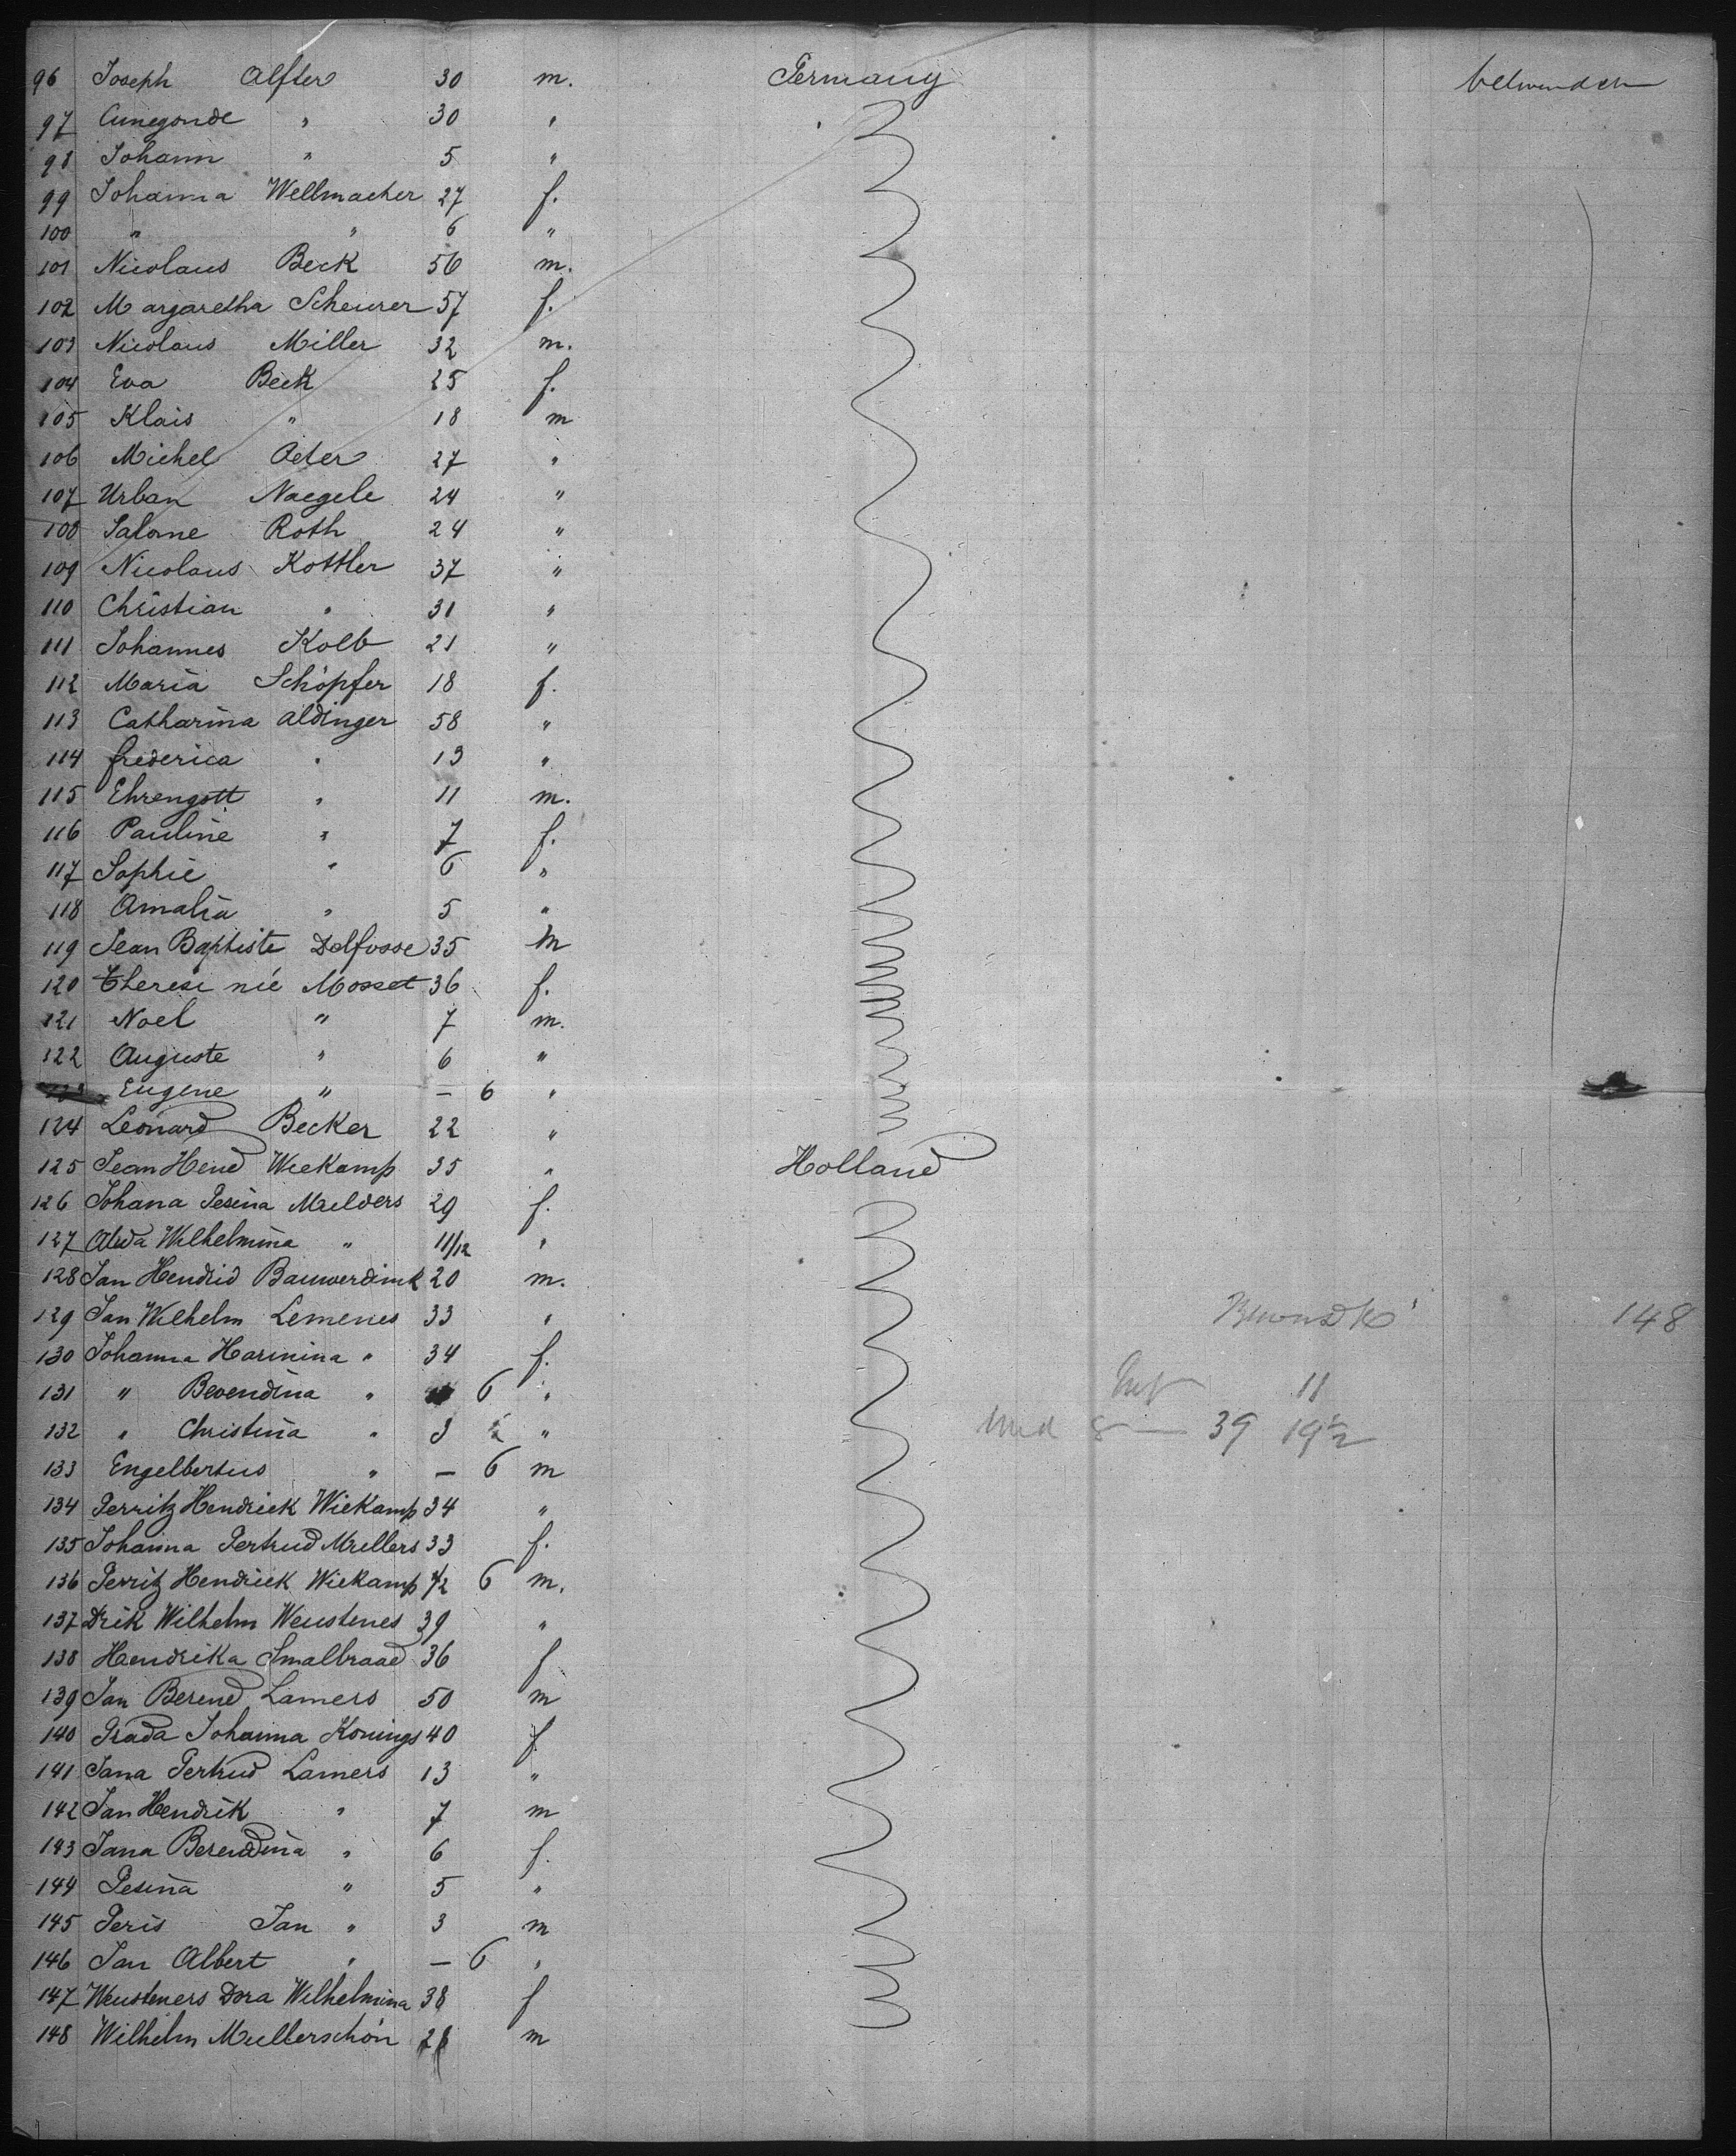 96 Joseph Alfter 30 m. Germany
97 Cunegonde " 30 "
98 Johann " 5 "
99 Johanna Wellmacher 27 f.
100 " " 6 "
101 Nicolaus Beck 56 m.
102 Margaretha Scheurer 57 f.
103 Nicolaus Miller 32 m.
104 Eva Beck 25 f.
105 Klais " 18 m
106 Michel Oeler 27 "
107 Urban Naegele 24 "
108 Salome Roth 24 "
109 Nicolaus Kottler 37 "
110 Christian " 31 "
111 Johannes Kolb 21 "
112 Maria Schöpfer 18 f.
113 Catharina Aldinger 58 "
114 frederica " 13 "
115 Ehrengott " 11 m.
116 Pauline " 7 f.
117 Sophie " 6 "
118 Amalia " 5 "
119 Jean Baptiste Delfosse 35 m
120 Therese née Mosset 36 f.
121 Noel " 7 m.
122 Auguste " 6 "
Eugene " — 6 "
124 Leonard Becker 22 "
125 Jean Hend Wiekamp 35 " Holland
126 Johana Gesina Mulders 29 f.
127 Alida Wilhelmina " 11/12 "
128 Jan Hendrid Bauwerdink 20 m.
129 Jan Wilhelm Lemenes 33 "
148
130 Johanna Harmina " 34 f.
131 " Bevendina " 6 "
11
132 " Christina " 3 "
39 19½
133 Engelbertus " — 6 m
134 Gerritz Hendrick Wiekamp 34 "
135 Johanna Gertrud Mullers 33 f.
136 Gerritz Hendrick Wiekamp 6 m.
137 Drik Wilhelm Weustenes 39 "
138 Hendrika Smalbraad 36 f
139 Jan Berend Lamers 50 m
140 Grada Johanna Konings 40 f
141 Jana Gertrud Lamers 13 "
142 Jan Hendrik " 7 m
143 Jana Berendina " 6 f.
144 Gesina " 5 "
145 Geris Jan " 3 m
146 Jan Albert " — 6 "
147 Weusteners Dora Wilhelmina 38 f
148 Wilhelm Mullerschön 28 m